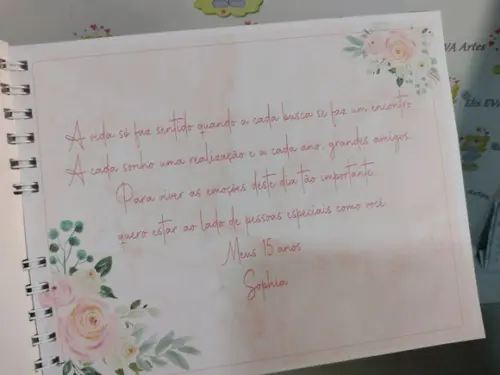 A vida só faz sentido quando a cada busca se faz um encontro
A cada sonho uma realização e a cada ano, grandes amigos.
Para viver as emoções deste dia tão importante
quero estar ao lado de pessoas especiais como você
Meus 15 anos
Sophia
VA Artes
Elis EVA